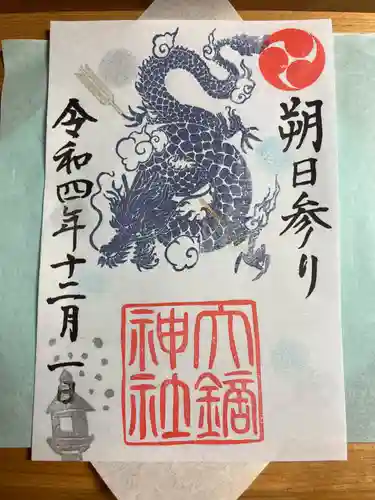 朔日参り
令和四年十二月一日
六鏑
神社